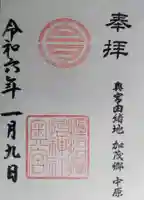 奉拝
真宮由緒地 加茂郷 中原
令和六年
一月九日